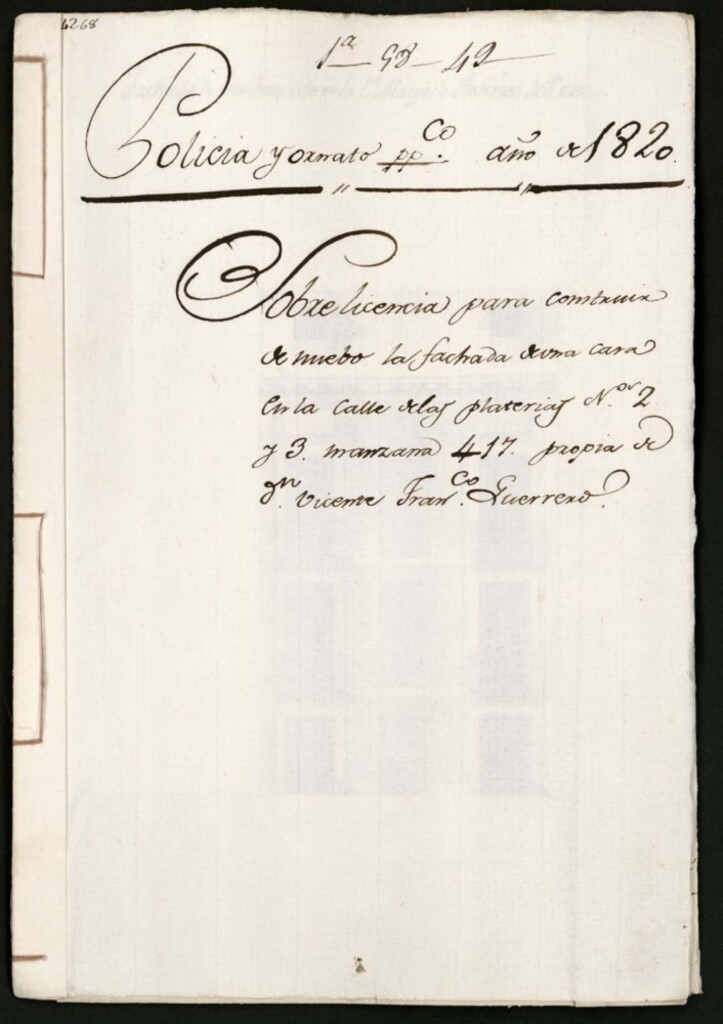 4268
1ª 58-42
Policia y ornato pp.co año de 1820.
Sobre licencia para construir
de nuebo la fachada de una casa
en la Calle de las platerias N.os 2
y 3. manzana 417. propia de
Dn. Vicente Fran.co Guerrero.